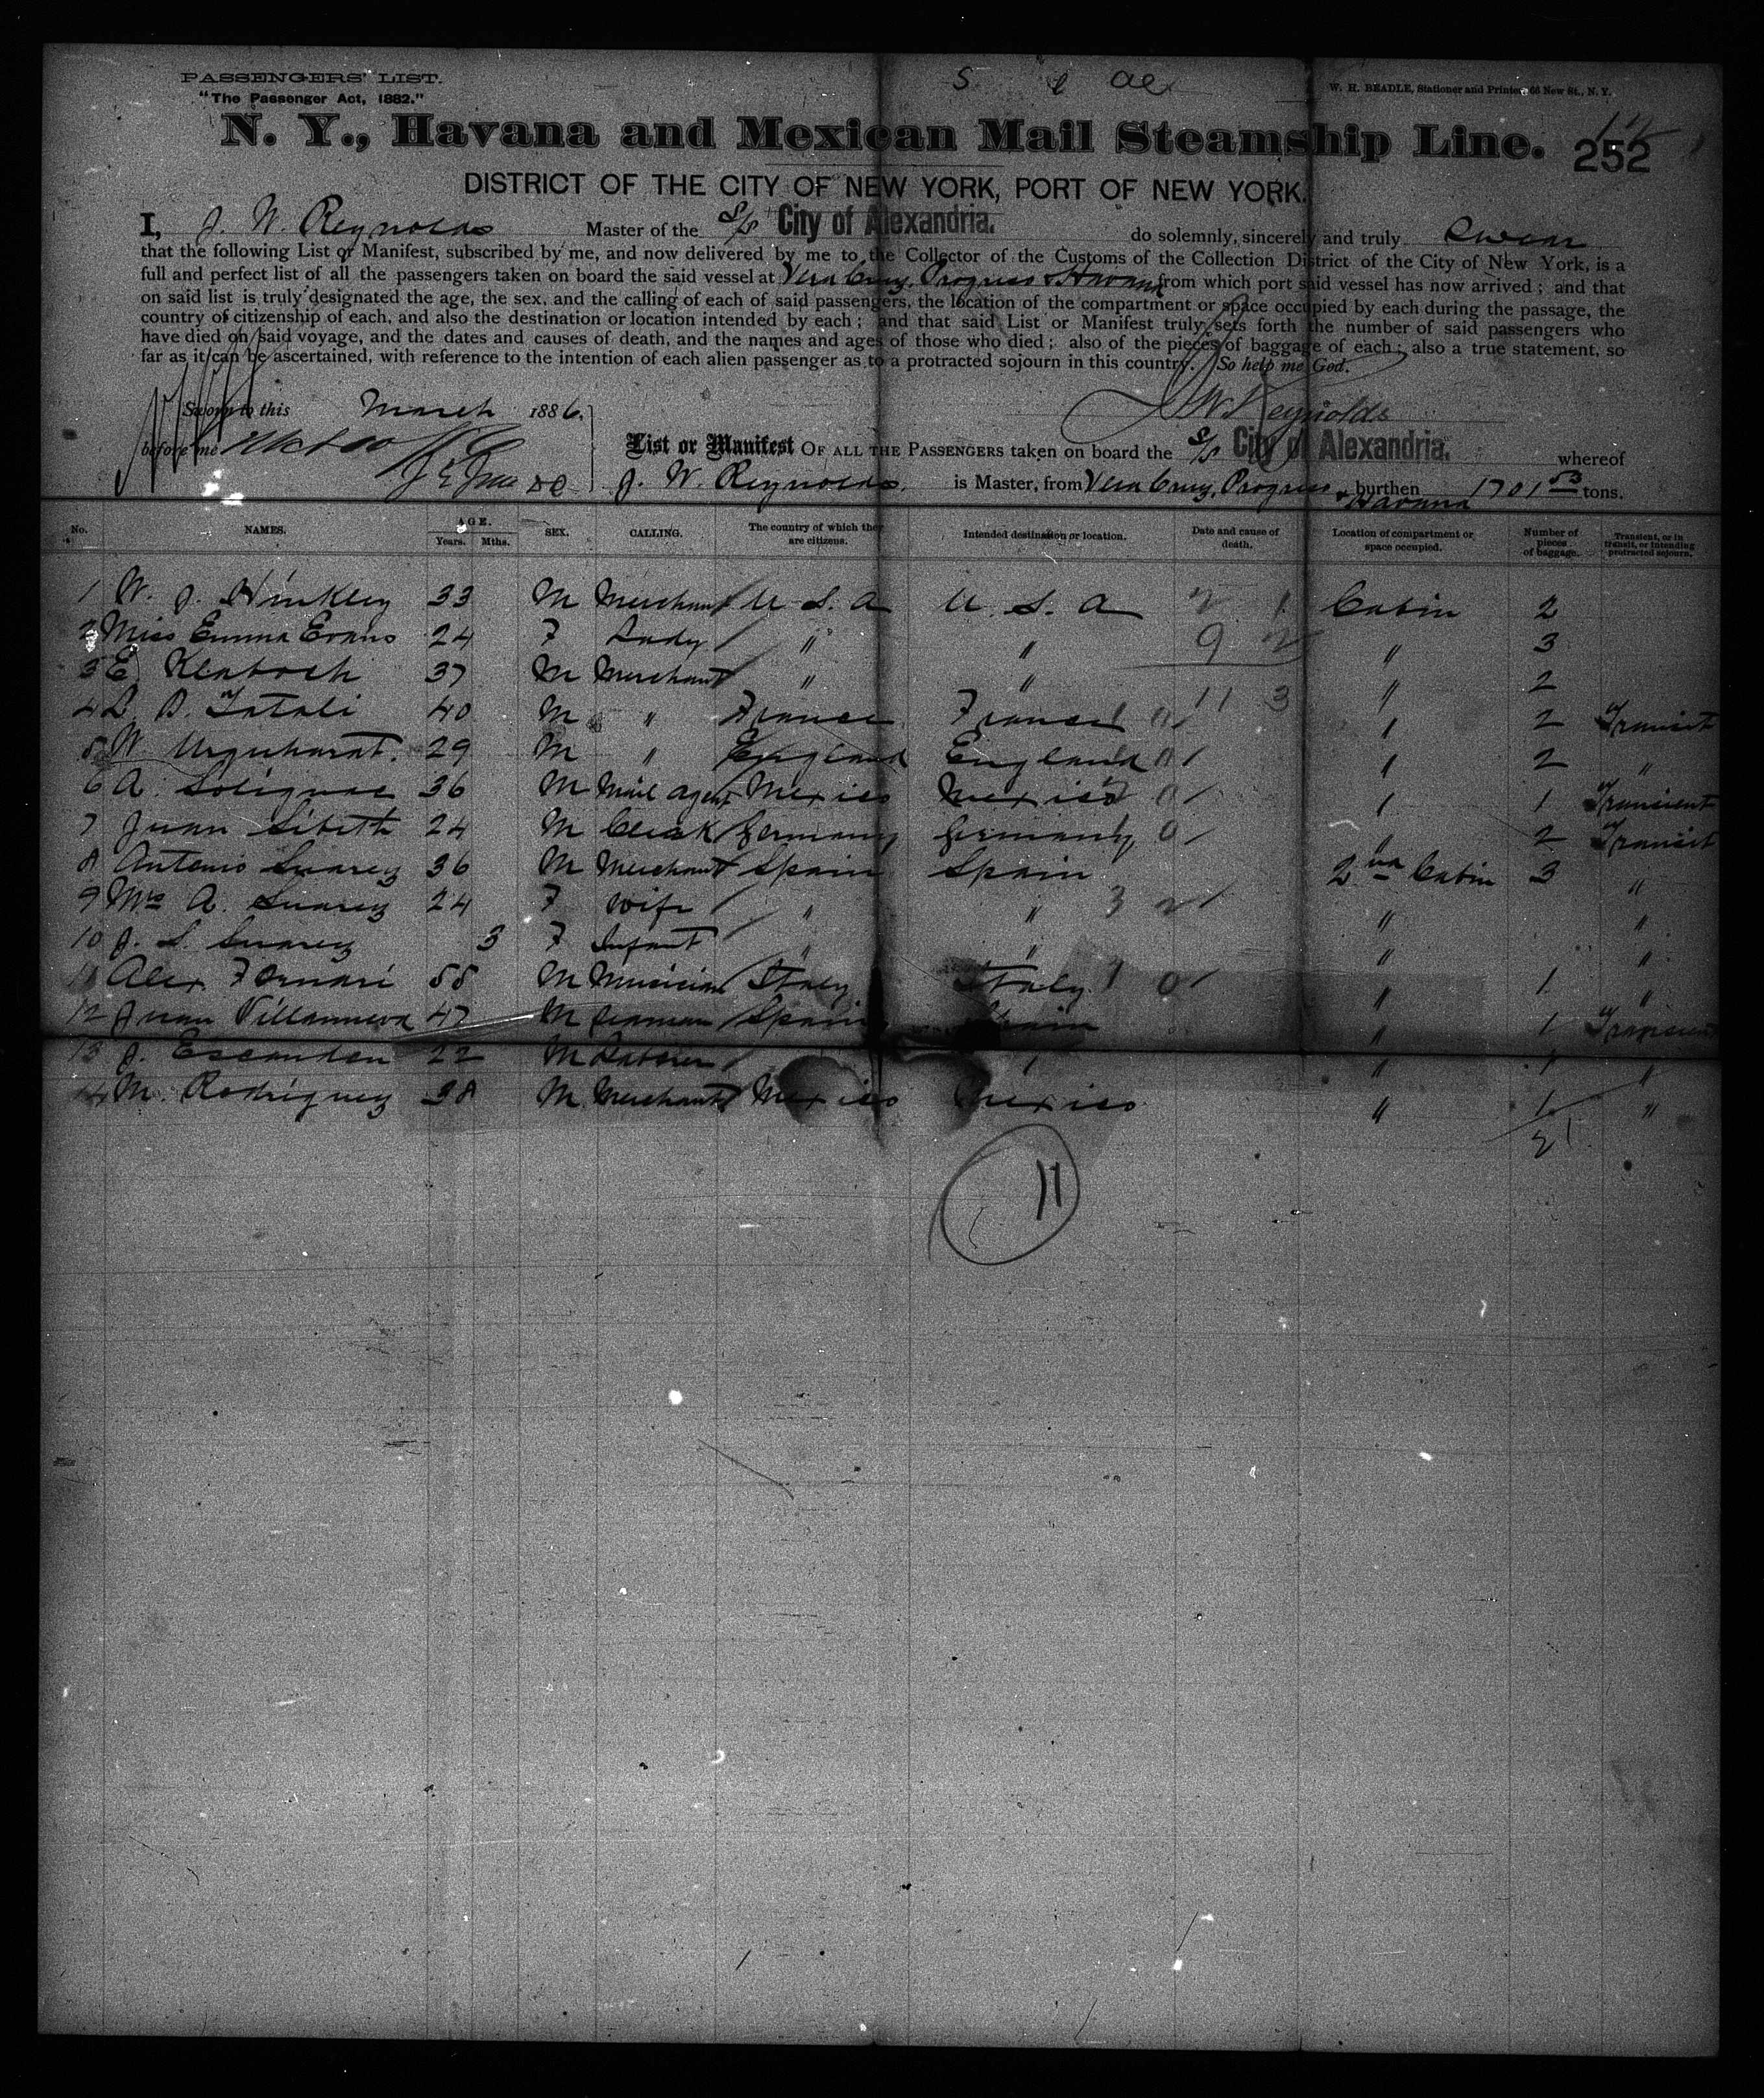 PASSENGERS' LIST.
"The Passenger Act, 1882."
W. H. BEADLE, Stationer and Printer, 66 New St., N. Y.
N. Y., Havana and Mexican Mail Steamship Line. 252
DISTRICT OF THE CITY OF NEW YORK, PORT OF NEW YORK.
I, J. W. Reynolds Master of the S/S City of Alexandria. do solemnly, sincerely and truly Swear
that the following List or Manifest, subscribed by me, and now delivered by me to the Collector of the Customs of the Collection District of the City of New York, is a
full and perfect list of all the passengers taken on board the said vessel at Vera Cruz, Progreso & Havana from which port said vessel has now arrived; and that
on said list is truly designated the age, the sex, and the calling of each of said passengers, the location of the compartment or space occupied by each during the passage, the
country of citizenship of each, and also the destination or location intended by each; and that said List or Manifest truly sets forth the number of said passengers who
have died on said voyage, and the dates and causes of death, and the names and ages of those who died; also of the pieces of baggage of each; also a true statement, so
far as it can be ascertained, with reference to the intention of each alien passenger as to a protracted sojourn in this country. So help me God.
Sworn to this March 1886. J W Reynolds
before me
List or Manifest OF ALL THE PASSENGERS taken on board the S/S City of Alexandria. whereof
J. W. Reynolds. is Master, from Vera Cruz, Progreso & Havana burthen 1701 53 tons.
No. NAMES. AGE. Years. Mths. SEX. CALLING. The country of which they are citizens. Intended destination or location. Date and cause of death. Location of compartment or space occupied. Number of pieces of baggage. Transient, or in transit, or intending protracted sojourn.
1 W. J. Hinkley 33 M Merchant U. S. A U. S. A Cabin 2
2 Miss Emma Evans 24 F Lady " " " 3
3 E. 37 M Merchant " " " 2
4 40 M " France France " 2 Transit
5 W. Urquhart. 29 M " England England " 2 "
6 A. Solignac 36 M Mail Agent Mexico Mexico " 1 Transient
7 Juan Sibeth 24 M Clerk Germany Germany " 2 Transit
8 Antonio Suarez 36 M Merchant Spain Spain 2nd Cabin 3 "
9 Mrs A. Suarez 24 F Wife " " " "
10 J. S. Suarez 3 F Infant " " " "
11 Alex Fornari 55 M Musician Italy Italy " 1 "
12 Juan Villanueva 47 M Seaman Spain Spain " 1 Transient
13 J. Escanden 22 M Laborer " " 1 "
14 M. Rodriguez 38 M Merchant Mexico Mexico " 1 "
21
11